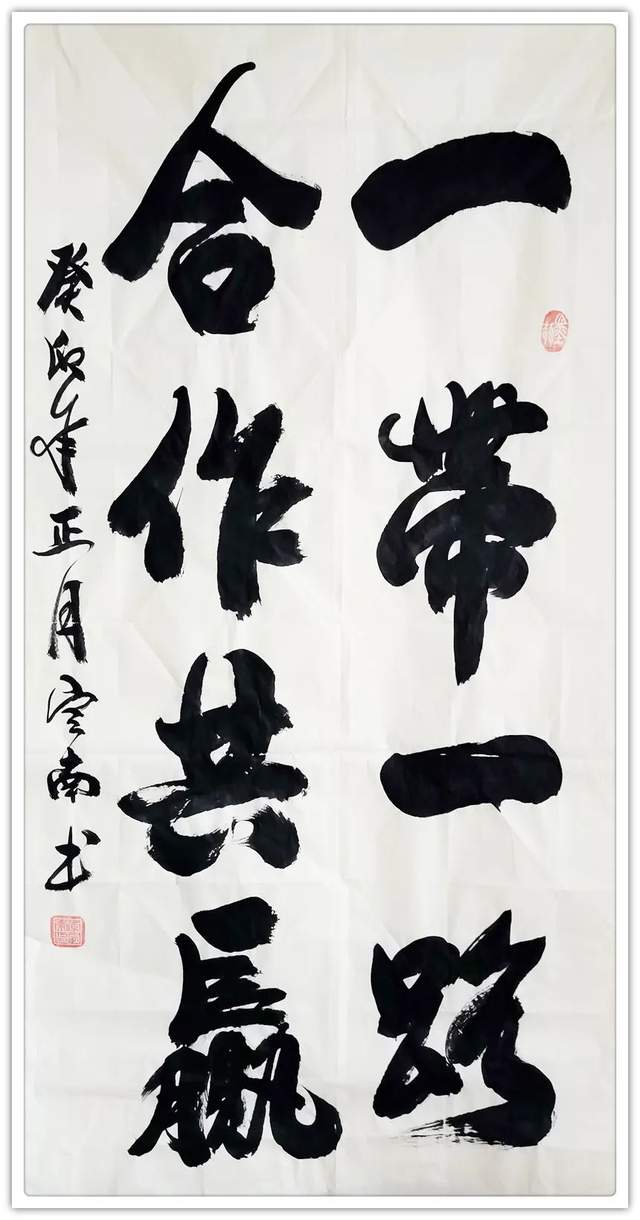 一带一路
合作共赢
癸卯年正月雲南书